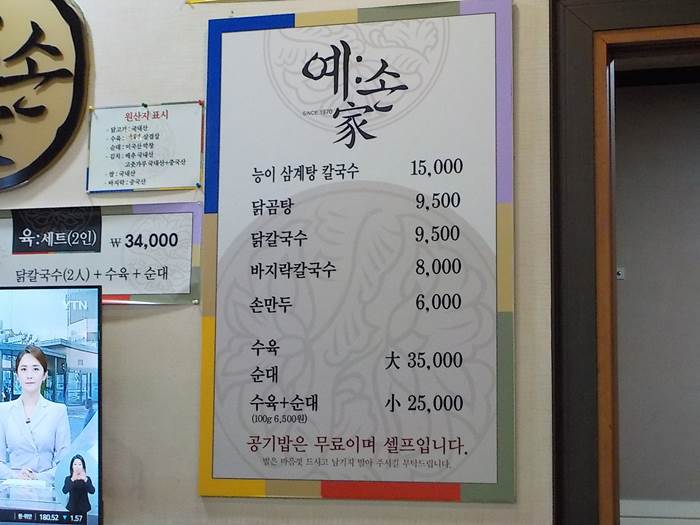 예:손
家
SINCE 1970
능이 삼계탕 칼국수 15,000
닭곰탕 9,500
닭칼국수 9,500
바지락칼국수 8,000
손만두 6,000
수육
순대
大 35,000
수육+순대 小 25,000
(100g 6,500원)
공기밥은 무료이며 셀프입니다.
밥은 마음껏 드시고 남기지 말아 주시길 부탁드립니다.
원산지 표시
· 닭고기 : 국내산
· 수육 : 삼겹살
· 순대 : 미국산 막창
· 김치 : 배추 국내산
고춧가루 국내산+중국산
· 쌀 : 국내산
· 바지락 : 중국산
육:세트(2인) ₩ 34,000
닭칼국수(2人) + 수육 + 순대
YTN
180.52 ▼ 1.57
손